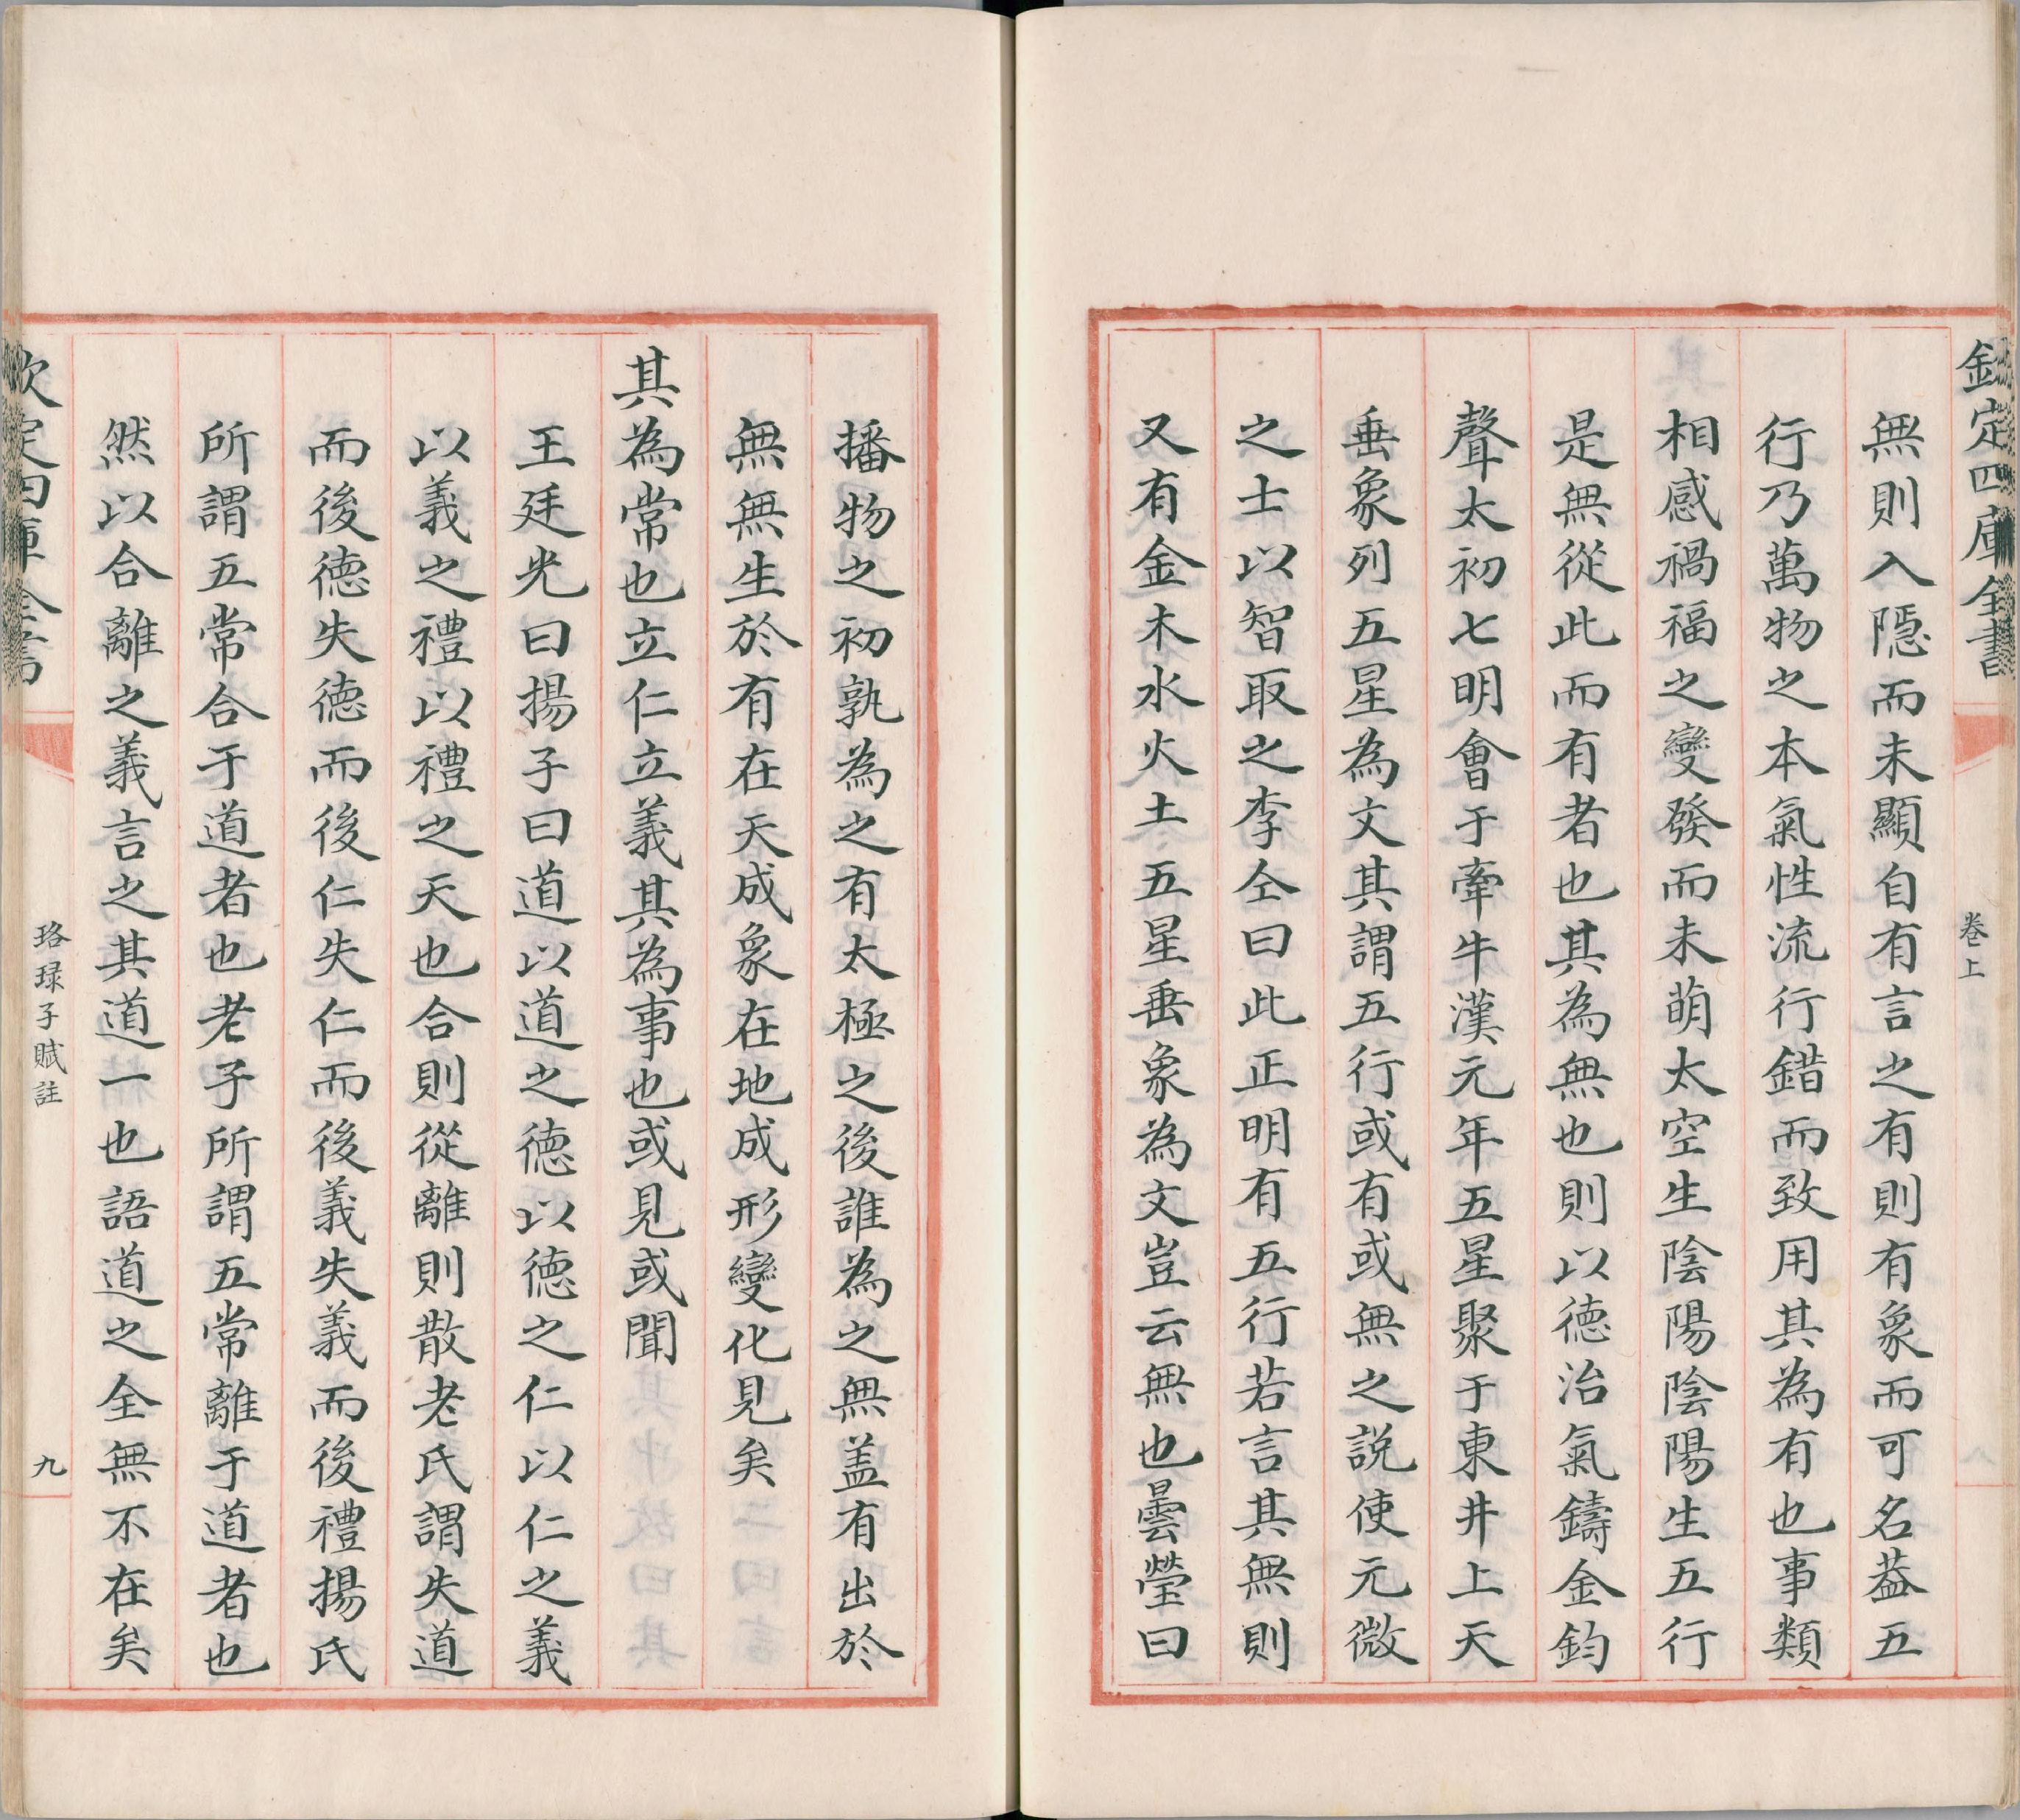 欽定四庫全書
卷上
無則入隱而未顯自有言之有則有象而可名葢五
行乃萬物之本氣性流行錯而致用其為有也事類
相感禍福之變發而未萌太空生陰陽陰陽生五行
是無從此而有者也其為無也則以德治氣鑄金鈞
聲太初七明會于牽牛漢元年五星聚于東井上天
垂象列五星為文其謂五行或有或無之説使元微
之士以智取之李仝曰此正明有五行若言其無則
又有金木水火土五星垂象為文豈云無也曇瑩曰
播物之初孰為之有太極之後誰為之無盖有出於
無無生於有在天成象在地成形變化見矣
其為常也立仁立義其為事也或見或聞
王廷光曰揚子曰道以道之德以德之仁以仁之義
以義之禮以禮之天也合則從離則散老氏謂失道
而後德失德而後仁失仁而後義失義而後禮揚氏
所謂五常合于道者也老子所謂五常離于道者也
然以合離之義言之其道一也語道之全無不在矣
欽定四庫全書
珞琭子賦註
九